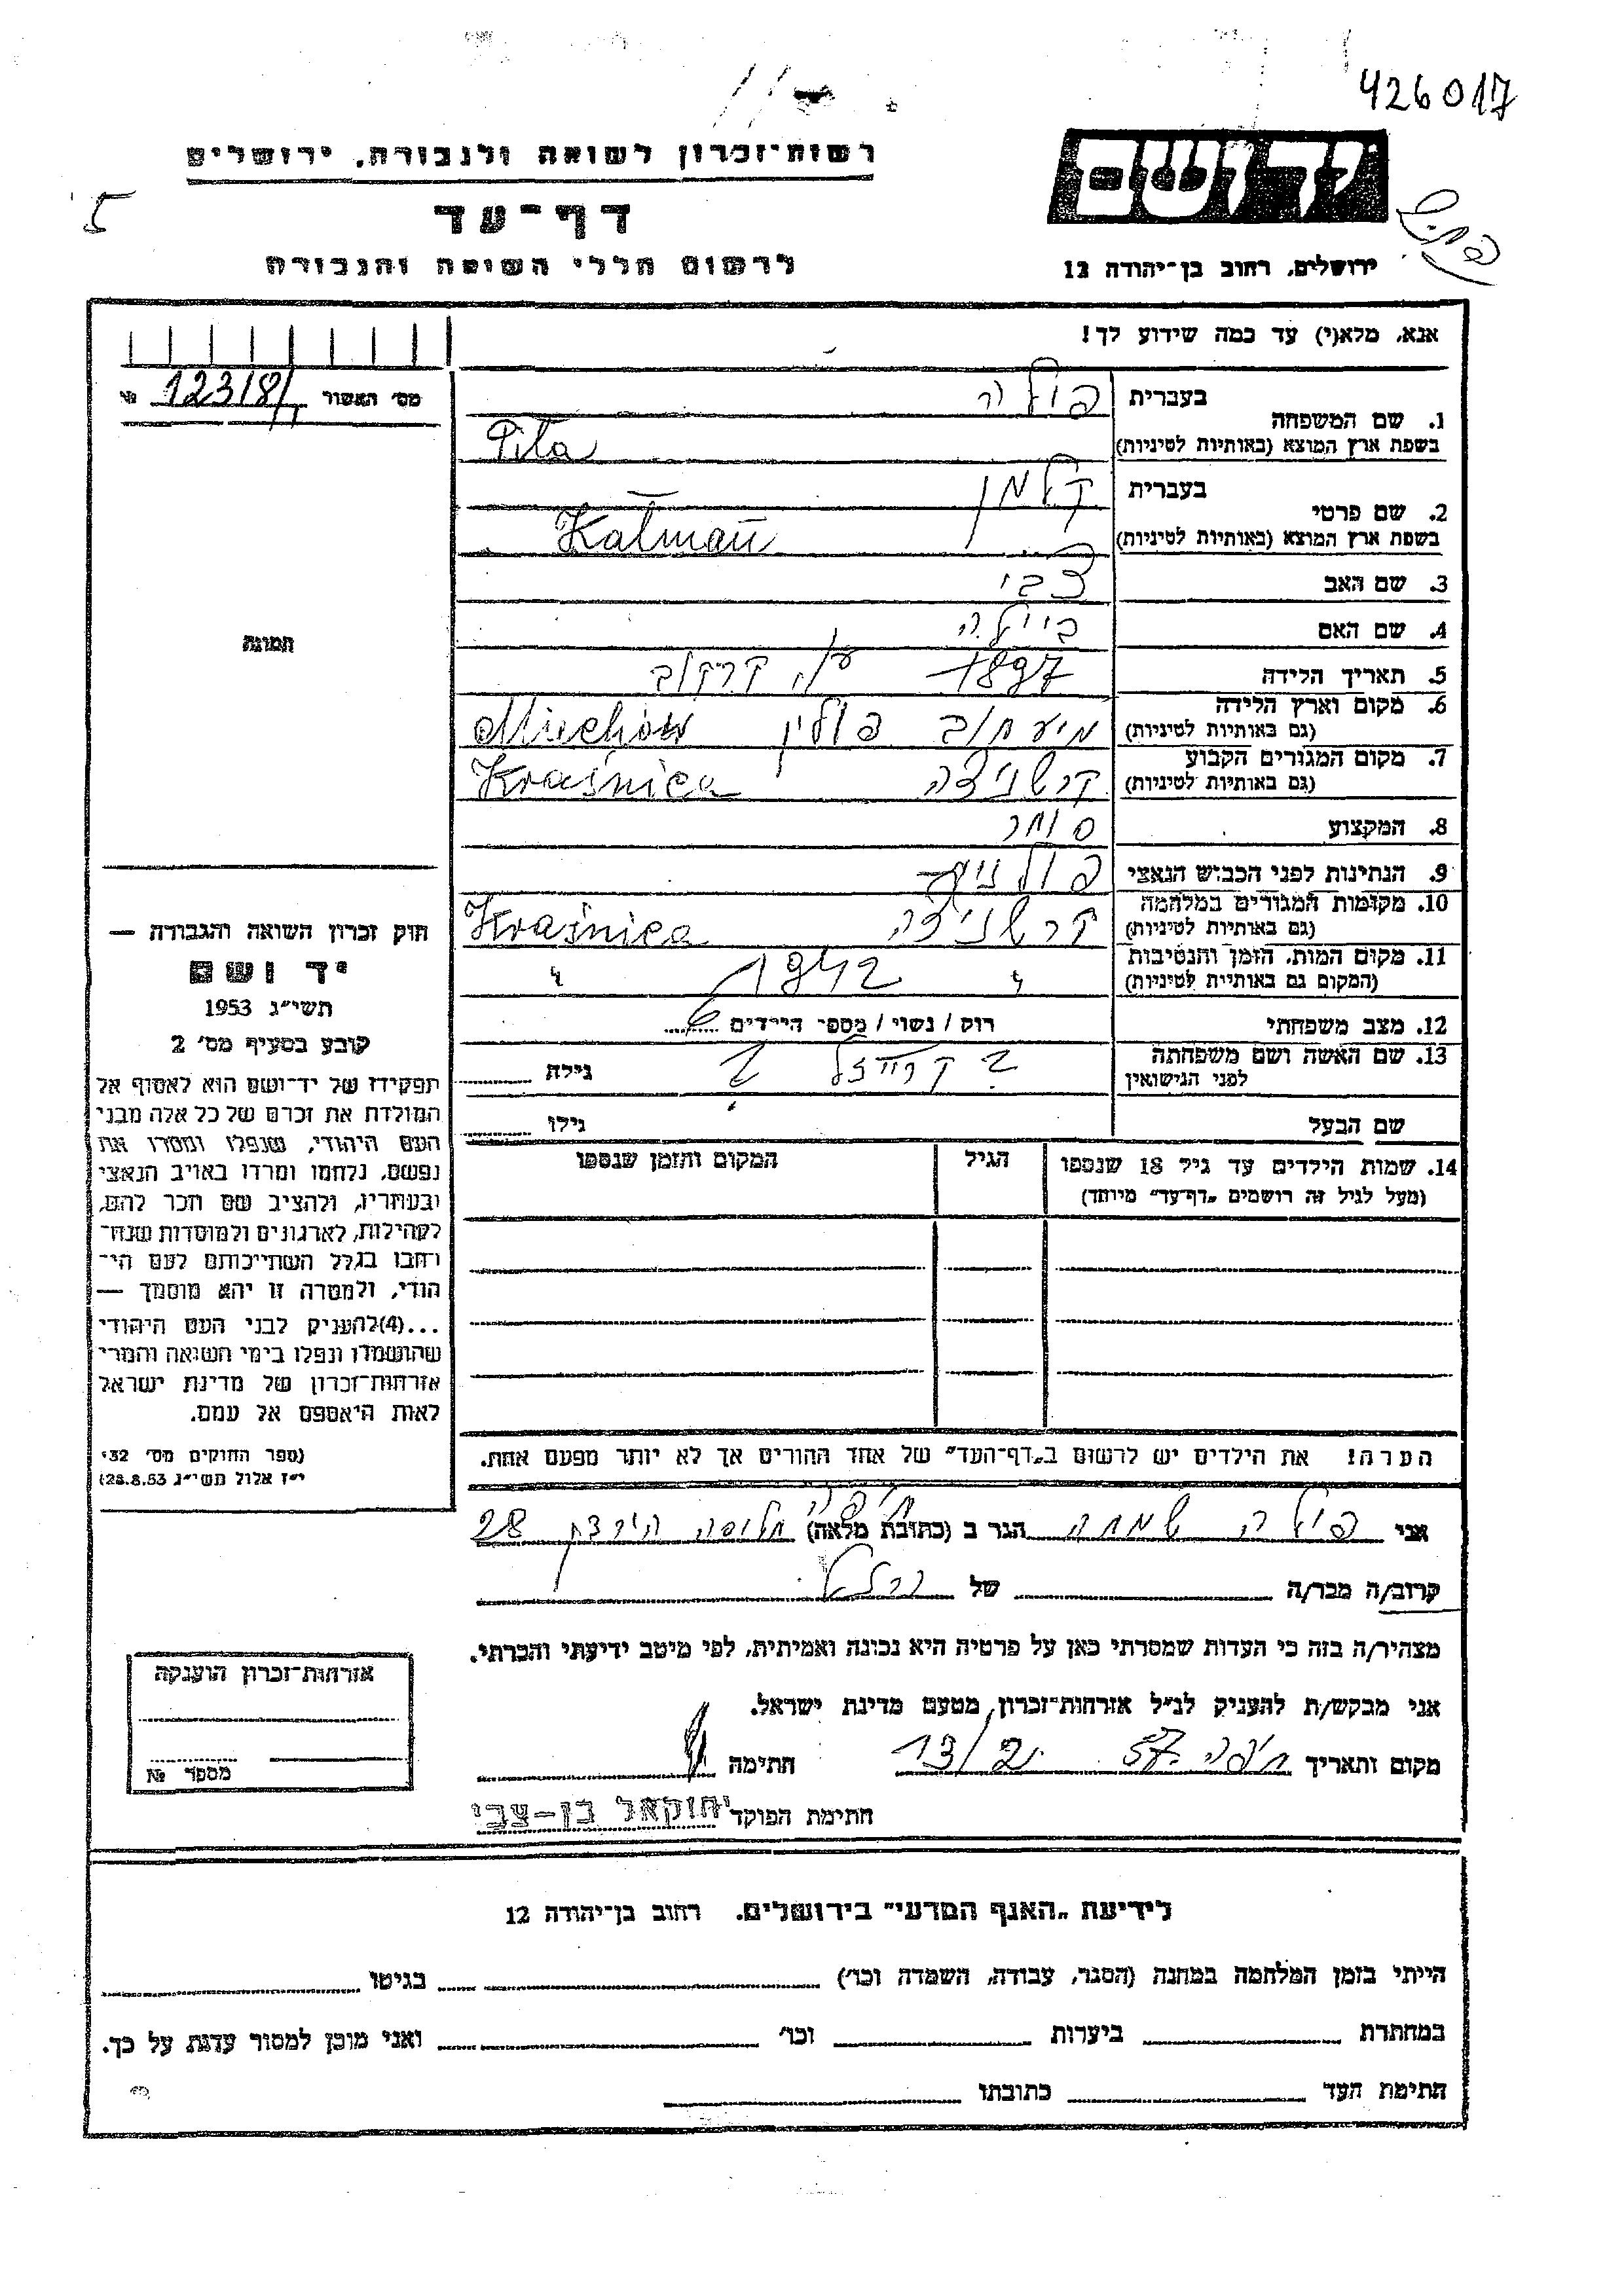 426017
רשות-זכרון לשואה ולגבורה, ירושלים
יד ושם
דף-עד
5
לרשום חללי השואה והגבורה
ירושלים, רחוב בן-יהודה 12
אנא, מלא(י) עד כמה שידוע לך!
מס' האשור
1. שם המשפחה
בעברית
פילה
בשפת ארץ המוצא (באותיות לטיניות)
Piła
2. שם פרטי
בעברית
קלמן
בשפת ארץ המוצא (באותיות לטיניות)
Kalman
3. שם האב
צבי
4. שם האם
ביילה
תמונה
5. תאריך הלידה
1897 ע/י קרקוב
6. מקום וארץ הלידה
(גם באותיות לטיניות)
מיעחוב פולין Miechów
7. מקום המגורים הקבוע
(גם באותיות לטיניות)
קרשניצה Kraśnica
8. המקצוע
סוחר
9. הנתינות לפני הכבוש הנאצי
פולנית
10. מקומות המגורים במלחמה
(גם באותיות לטיניות)
קרשניצה Kraśnica
11. מקום המות, הזמן והנסיבות
(המקום גם באותיות לטיניות)
1942
12. מצב משפחתי
רוק / נשוי / מספר הילדים
13. שם האשה ושם משפחתה
לפני הנישואין
גילה
שם הבעל
גילו
14. שמות הילדים עד גיל 18 שנספו
(מעל לגיל זה רושמים „דף-עד" מיוחד)
הגיל
המקום והזמן שנספו
הערה! את הילדים יש לרשום ב„דף-העד" של אחד ההורים אך לא יותר מפעם אחת.
חוק זכרון השואה והגבורה —
יד ושם
תשי"ג 1953
קובע בסעיף מס' 2
תפקידו של יד-ושם הוא לאסוף אל
המולדת את זכרם של כל אלה מבני
העם היהודי, שנפלו ומסרו את
נפשם, נלחמו ומרדו באויב הנאצי
ובעוזריו, ולהציב שם וזכר להם,
לקהילות, לארגונים ולמוסדות שנח-
רבו בגלל השתייכותם לעם הי-
הודי, ולמטרה זו יהא מוסמך —
...(4)להעניק לבני העם היהודי
שהושמדו ונפלו בימי השואה והמרי
אזרחות-זכרון של מדינת ישראל
לאות היאספם אל עמם.
(ספר החוקים מס' 132
י"ז אלול תשי"ג 28.8.53)
אני פילה שמחה הגר ב (כתובת מלאה) חיפה חלוסה הירדן 28
קרוב/ה מכר/ה של
מצהיר/ה בזה כי העדות שמסרתי כאן על פרטיה היא נכונה ואמיתית, לפי מיטב ידיעתי והכרתי.
אני מבקש/ת להעניק לנ"ל אזרחות-זכרון מטעם מדינת ישראל.
מקום ותאריך חיפה 13/2.57 חתימה
חתימת הפוקד יחזקאל בן-צבי
אזרחות-זכרון הוענקה
מספר №
לידיעת „האגף המדעי" בירושלים. רחוב בן-יהודה 12
הייתי בזמן המלחמה במחנה (הסגר, עבודה, השמדה וכו') בגיטו
במחתרת ביערות וכו' ואני מוכן למסור עדות על כך.
חתימת העד כתובתו